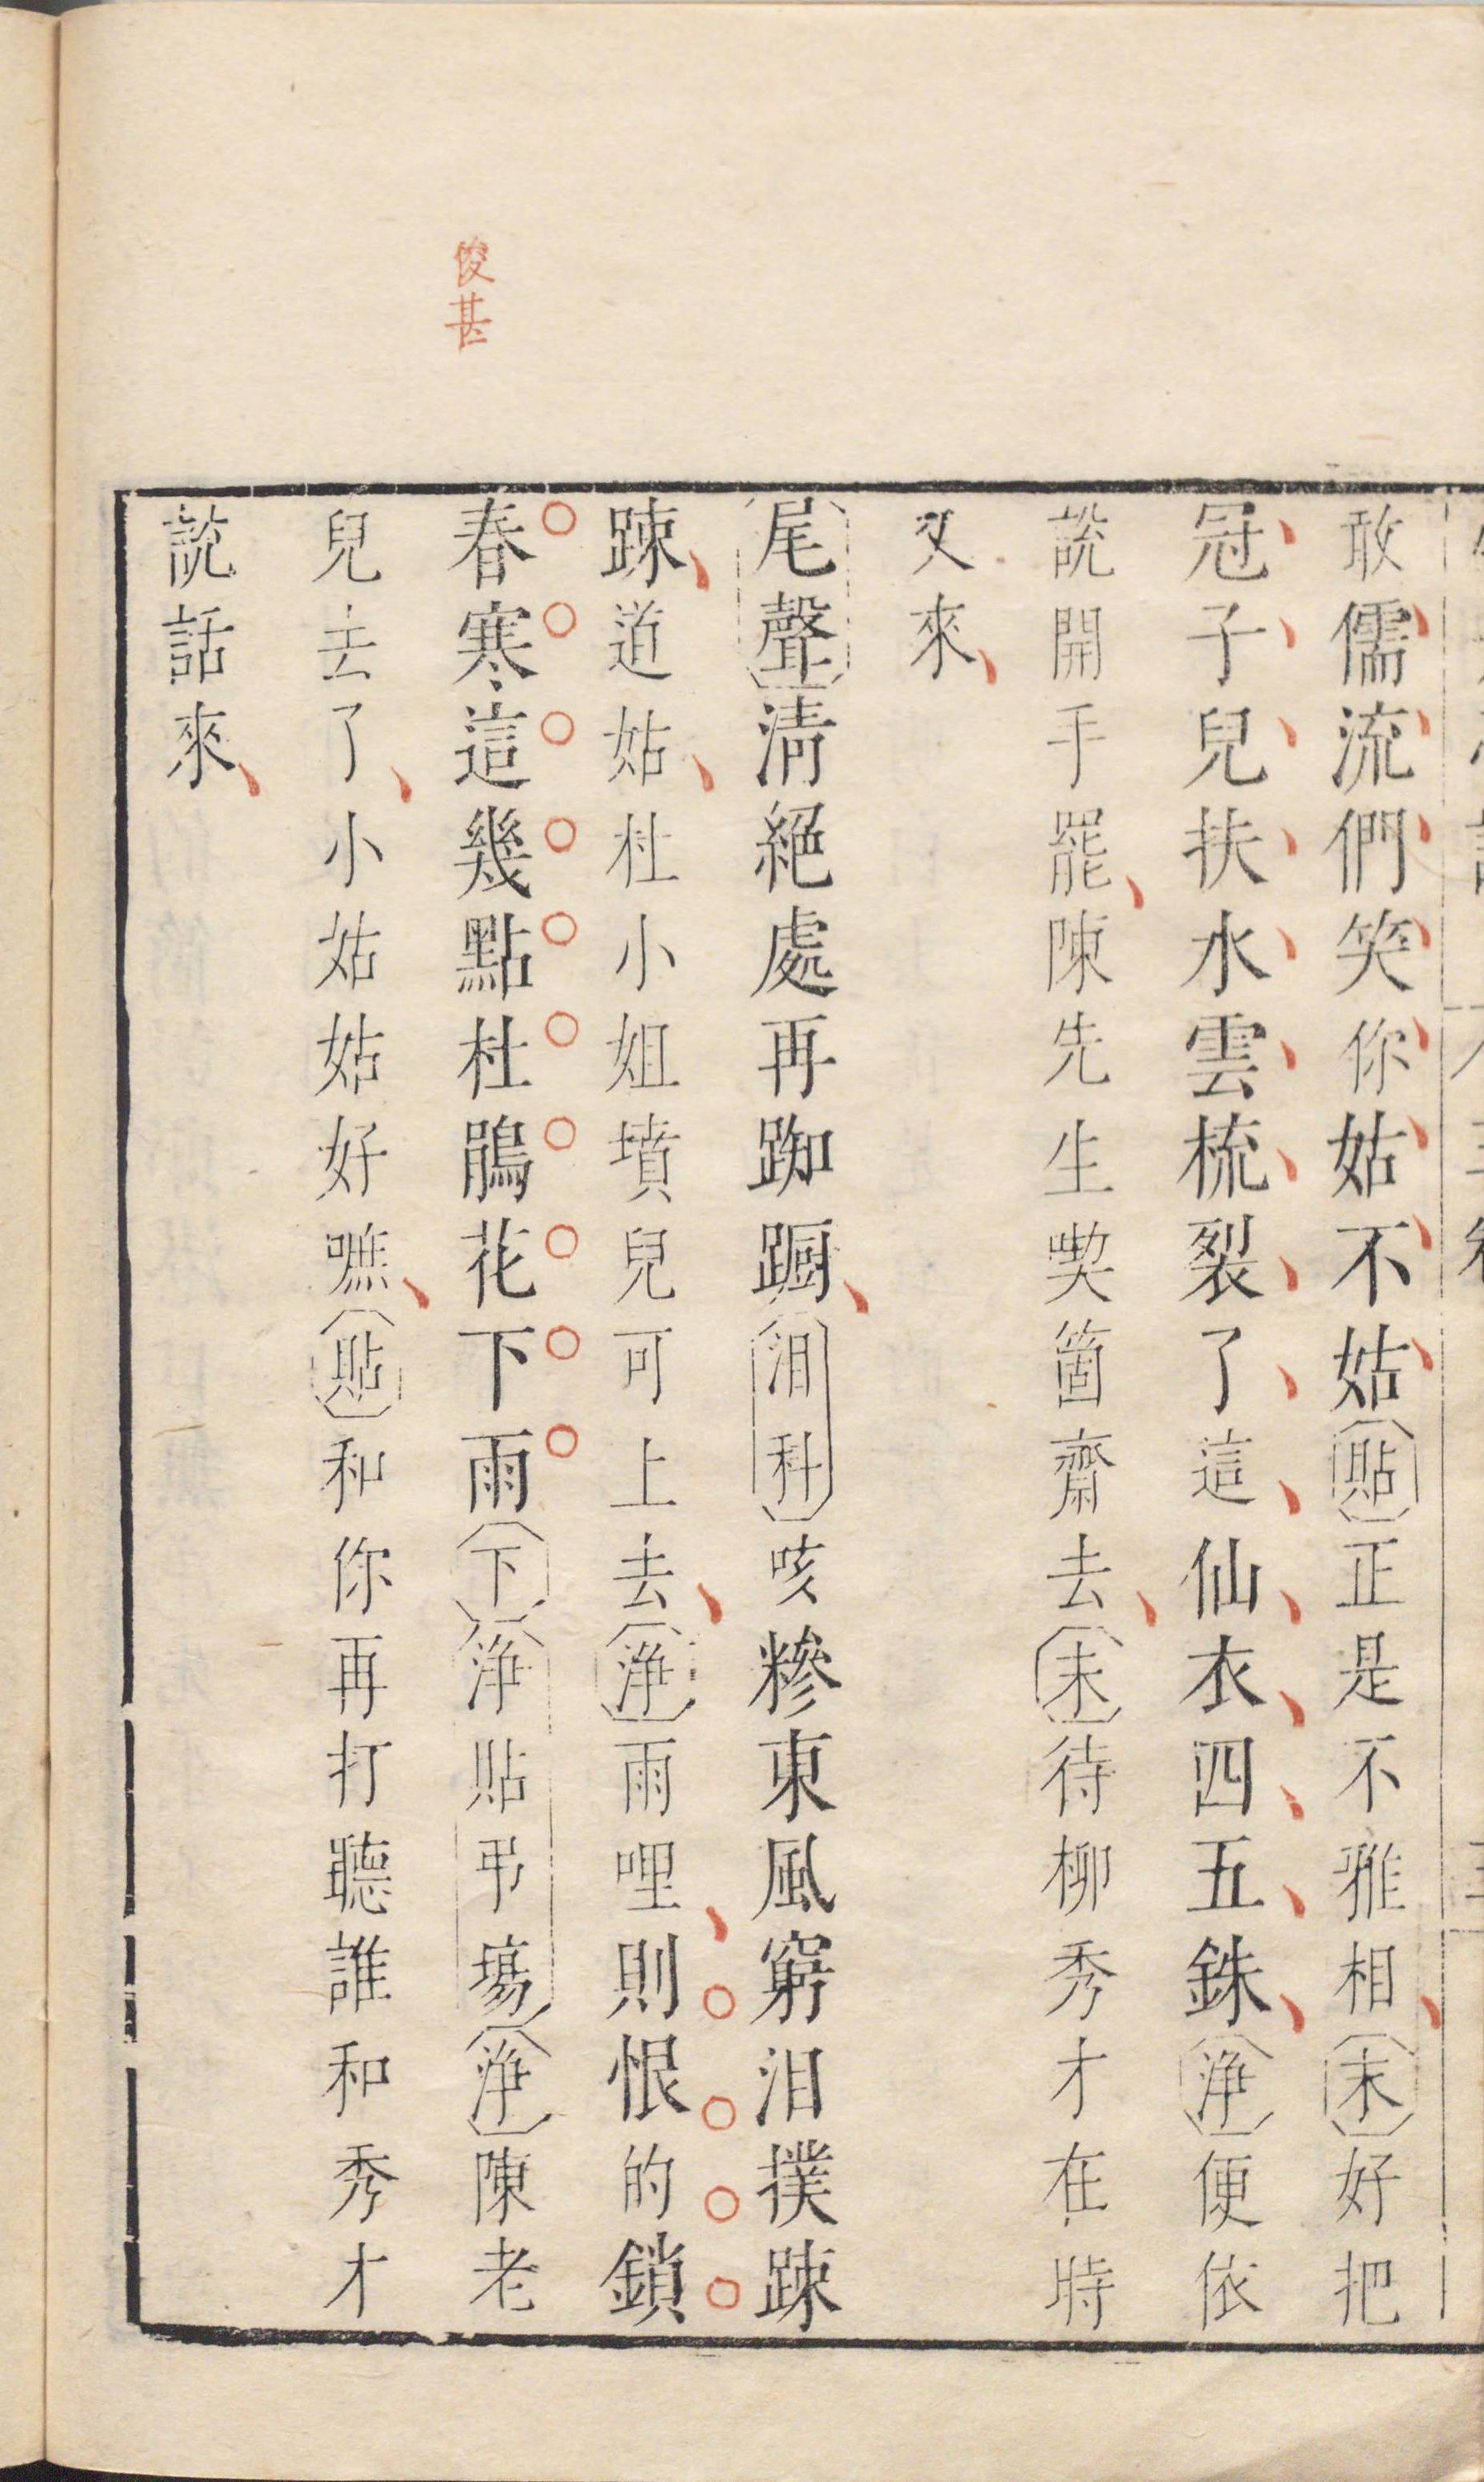 敢儒流們笑你姑不姑貼正是不雅相末好把
冠子兒扶水雲梳裂了這仙衣四五銖淨便依
說開手罷陳先生喫箇齋去末待柳秀才在時
又來
尾聲清絕處再踟躕淚科咳糝東風窮淚撲踈
踈道姑杜小姐墳兒可上去淨雨哩則恨的鎖
俊甚
春寒這幾點杜鵑花下雨下淨貼弔場淨陳老
兒去了小姑姑好嘸貼和你再打聽誰和秀才
說話來